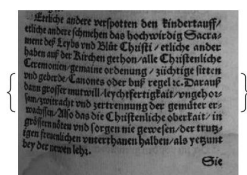 Etliche andere verspotten den kindertauff/
etliche andere schmehen das hochwirdig Sacra-
ment deß Leybs vnd Blůt Christi/ etliche ander
haben auß der Kirchen gethon/alle Christenliche
Ceremonien/gemaine ordenung/züchtige sitten
vnd geberde/Canones oder bůß regel ⁊c. Darauß
dann grosser mutwill/leychtfertigkait/vngehor-
sam/zwitracht vnd zertrennung der gemüter er-
wachssen/Also das die Christenliche oberkait/in
größsern nöten vnd sorgen nie gewesen/der trutz-
igen freuenlichen vnterthanen halben/als yetzunt
bey der newen lehr.
Sie